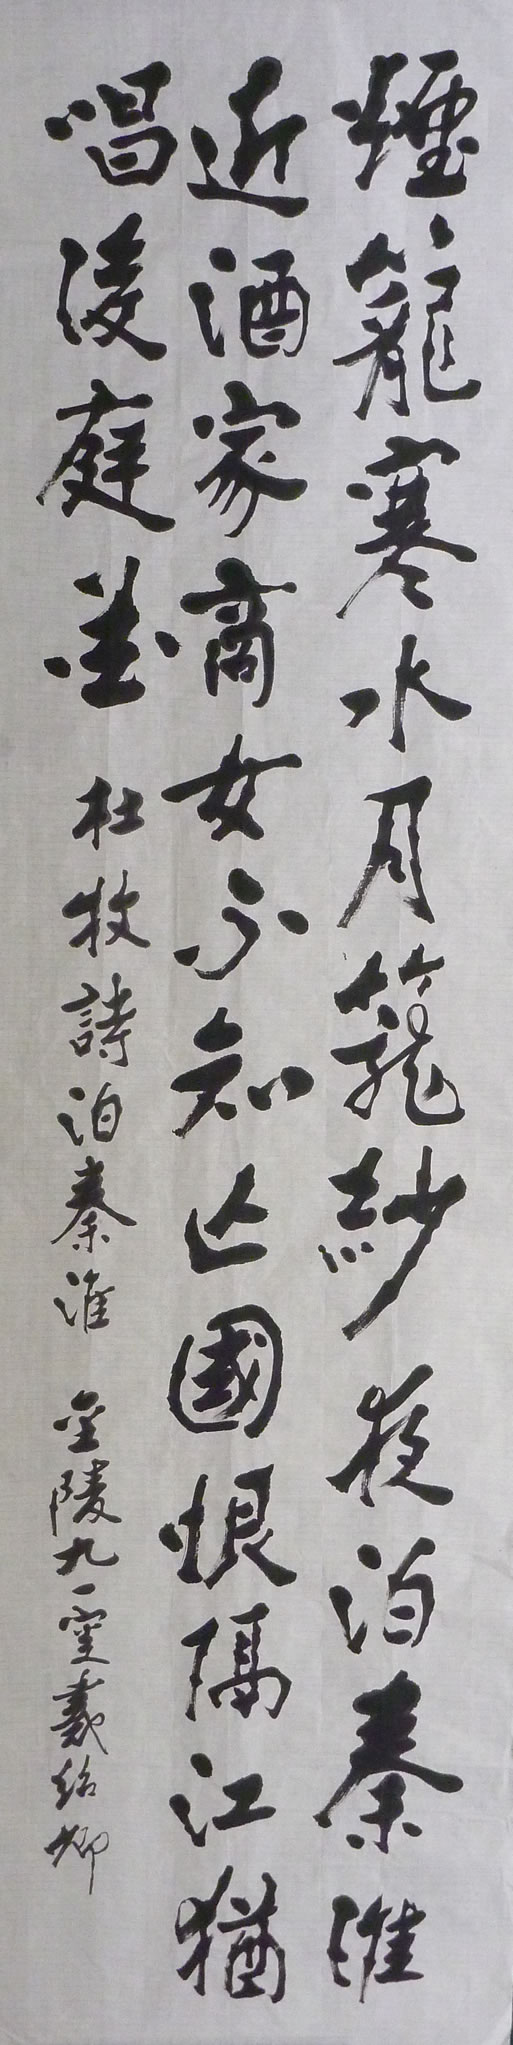 煙籠寒水月籠紗夜泊秦淮
近酒家商女不知亡國恨隔江猶
唱後庭花 杜牧詩泊秦淮 金陵九一叟戴紹卿